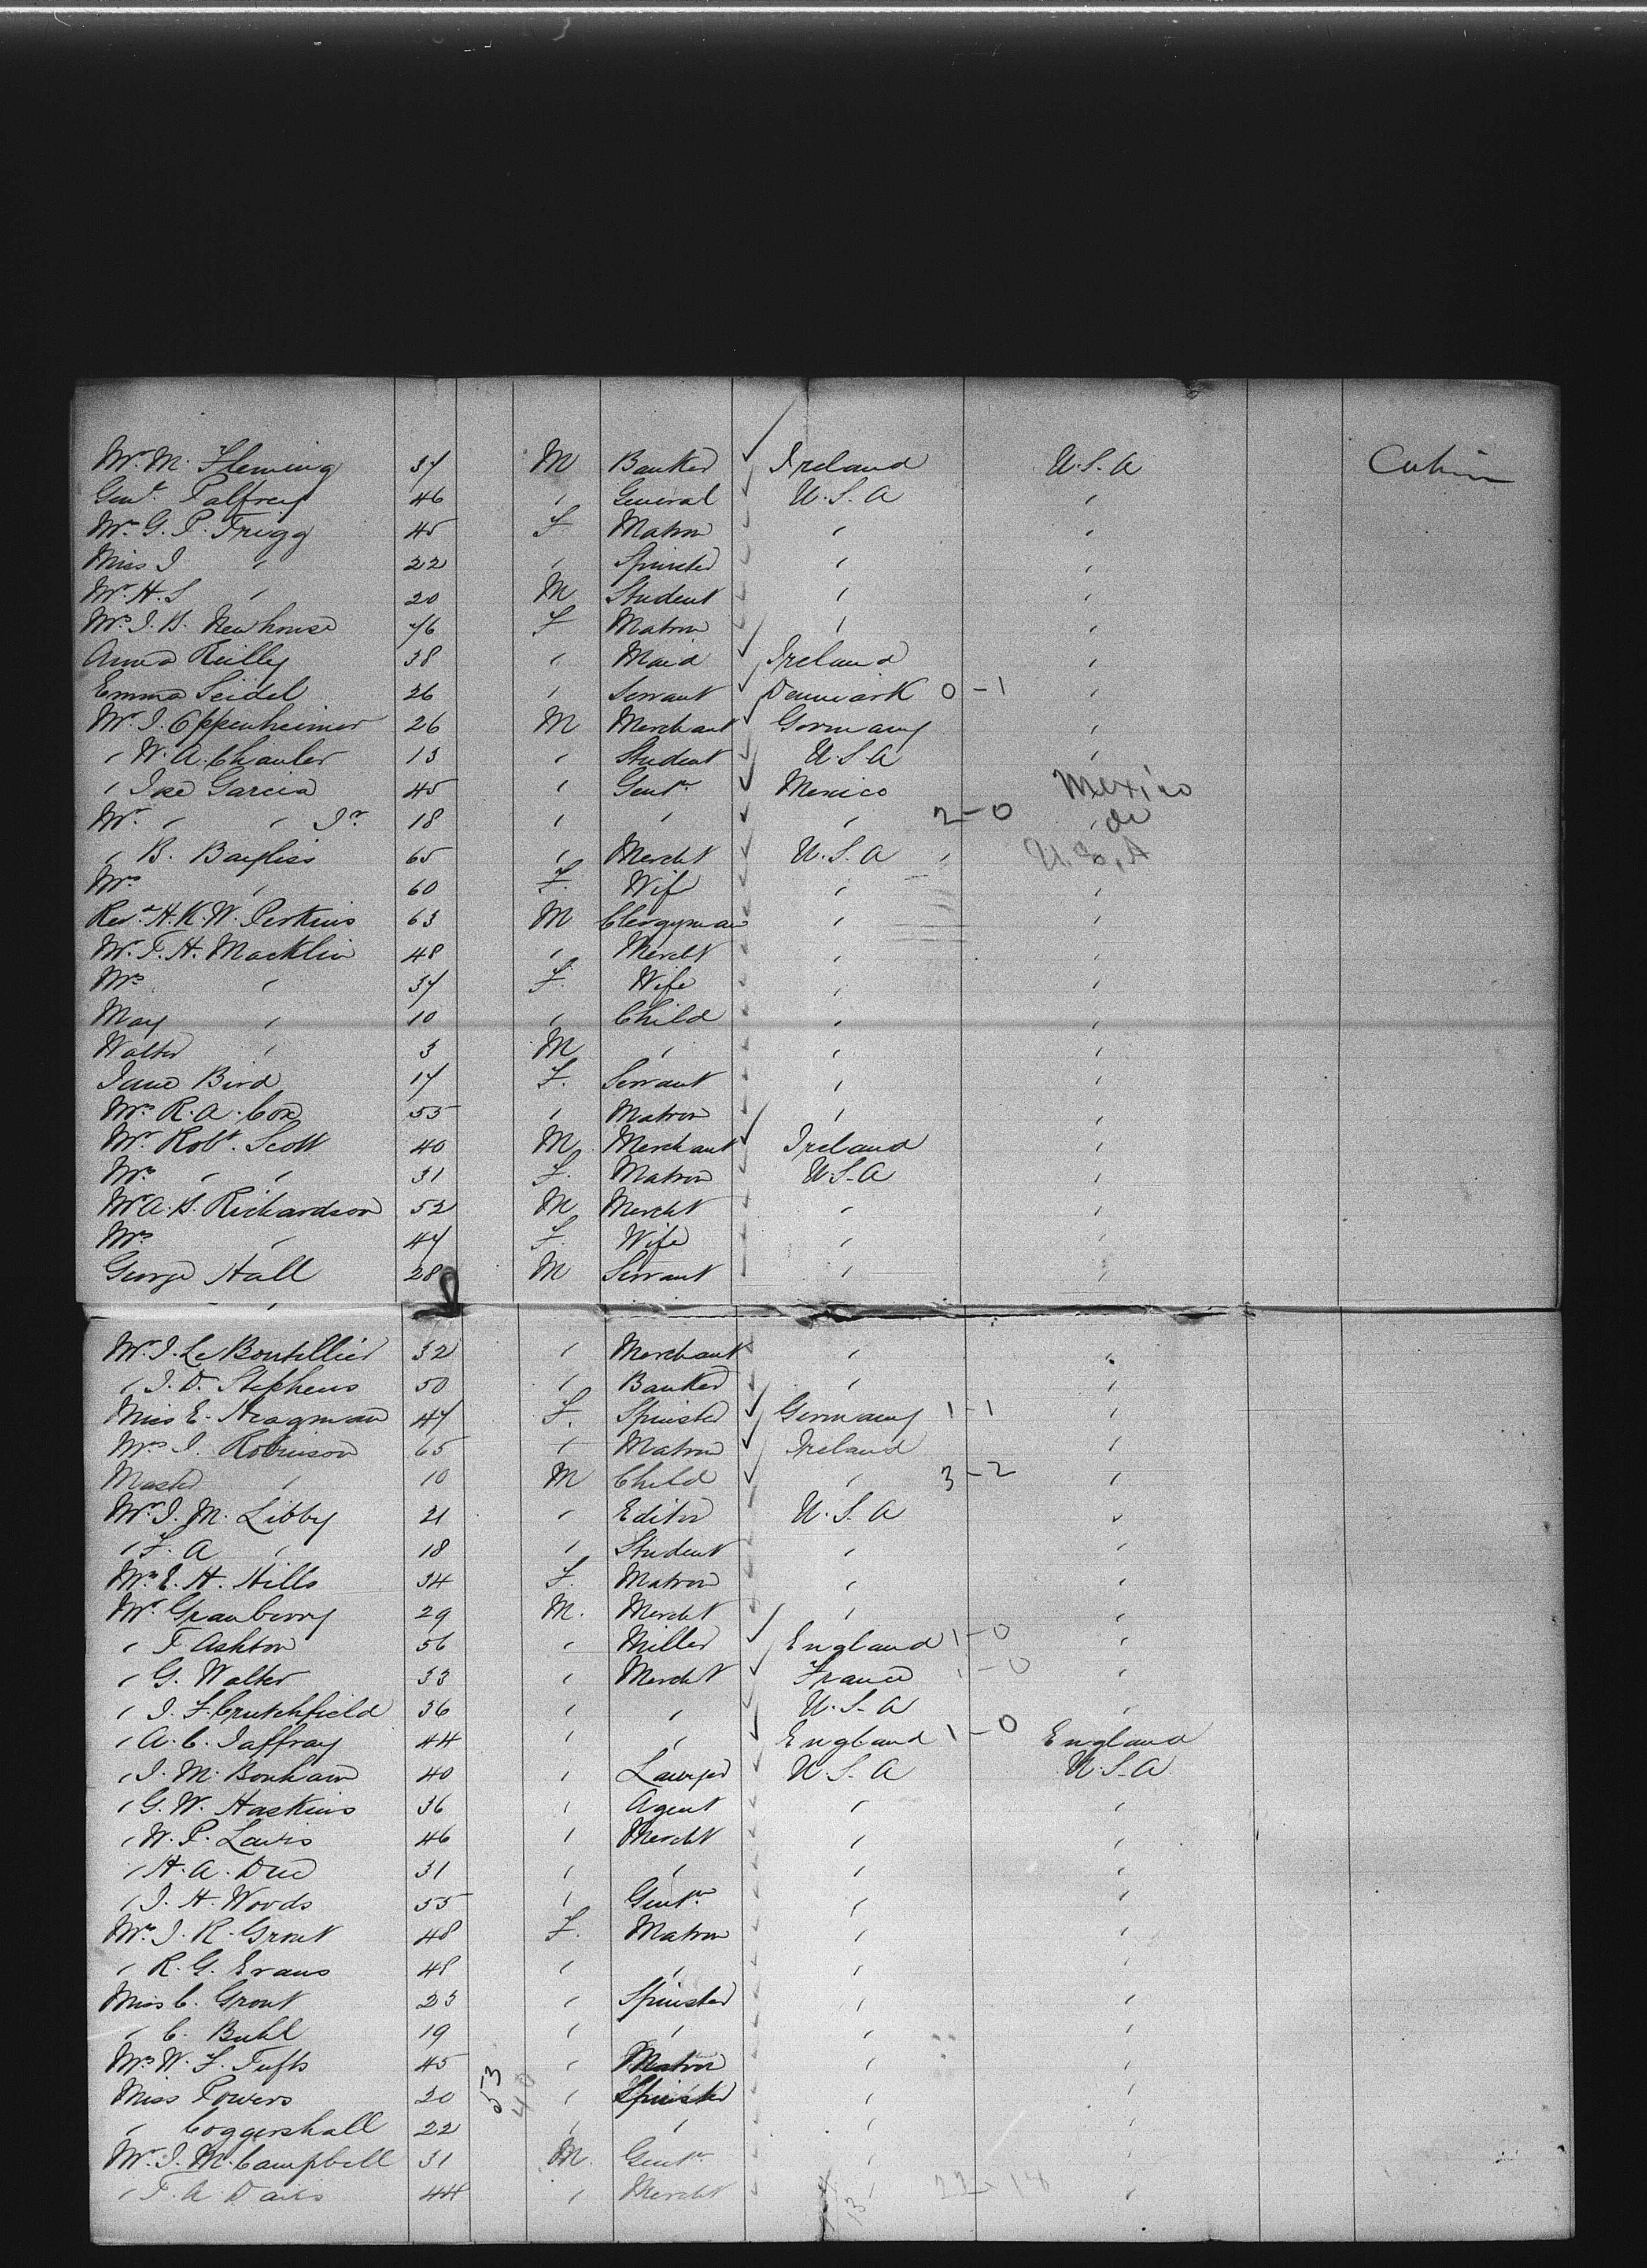 Mr. M. Fleming 37 M Banker Ireland U.S.A Cabin
Genl. Palfrey 46 " General U.S.A "
Mrs G. P. Trigg 45 F. Matron " "
Miss J " 22 " Spinster " "
Mr. H. S " 20 M Student " "
Mrs. J. B. Newhouse 76 F Matron " "
Anna Reilly 38 " Maid Ireland "
Emma Seidel 26 " Servant Denmark 0-1 "
Mr. J. Oppenheimer 26 M Merchant Germany "
" W. A. Chanler 13 " Student U.S.A "
" Jose Garcia 45 " Gentn. Mexico Mexico
Mr. " " Jr. 18 " " " 2-0 " do
" B. Bayliss 65 " Mercht U.S.A " U.S,A
Mrs " 60 F. Wife " "
Revd. H. K. W. Perkins 63 M Clergyman " "
Mr. F. H. Macklin 48 " Mercht " "
Mrs " 37 F. Wife " "
May " 10 " Child " "
Walter " 3 M " " "
Jane Bird 17 F. Servant " "
Mrs R. A. Cox 55 " Matron " "
Mr Robt. Scott 40 M. Merchant Ireland "
Mrs " " 31 F. Matron U.S.A "
Mr A. S. Richardson 52 M Mercht " "
Mrs. " 47 F. Wife " "
George Hall 28 M Servant " "
Mr. J. Le Boutillier 32 " Merchant " "
" J. D. Stephens 50 " Banker " "
Miss E. Hragman 47 F. Spinster Germany 1-1 "
Mrs J. Robinson 65 " Matron Ireland "
Master " 10 M Child " 3-2 "
Mr. J. M. Libby 21 " Editor U.S.A "
" F. A " 18 " Student " "
Mrs E. H. Hills 34 F. Matron " "
Mr. Granberry 29 M. Mercht " "
" T Ashton 56 " Miller England 1-0 "
" G. Walter 33 " Mercht France 1-0 "
" J. F. Crutchfield 36 " " U.S.A "
" A. C. Jaffray 44 " " England 1-0 England
" J. M. Bonham 40 " Lawyer U.S.A U.S.A
" G. W. Haskins 36 " Agent " "
" W. P. Lewis 46 " Mercht " "
" H. A. Due 31 " " " "
" J. H. Woods 55 " Gentn. " "
Mrs. J. R. Grout 48 F. Matron " "
" R. G. Evans 48 " " " "
Miss C. Grout 23 " Spinster " "
" C. Buhl 19 " " " "
Mrs W. F. Tufts 45 " Matron " "
Miss Powers 20 53 " Spinster " "
" Coggershall 22 " " " "
Mr. J. M. Campbell 31 M. Gentn. " "
" F. A. Davis 44 " Mercht " "